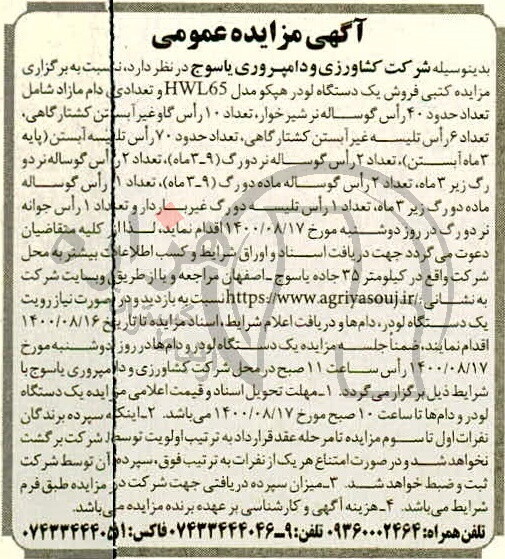 آگهی مزایده عمومی
بدینوسیله شرکت کشاورزی و دامپروری یاسوج در نظر دارد، نسبت به برگزاری
مزایده کتبی فروش یک دستگاه لودر هپکو مدل HWL65 و تعدادی دام مازاد شامل
تعداد حدود ۴۰ رأس گوساله نر شیرخوار، تعداد ۱۰ رأس گاو غیر آبستن کشتارگاهی،
تعداد ۶ رأس تلیسه غیر آبستن کشتارگاهی، تعداد حدود ۷۰ رأس تلیسه آبستن (پایه
۳ ماه آبستن)، تعداد ۲ رأس گوساله نر دو رگ (۹-۳ماه)، تعداد ۲ رأس گوساله نر دو
رگ زیر ۳ ماه، تعداد ۲ رأس گوساله ماده دو رگ (۹-۳ماه)، تعداد ۱ رأس گوساله
ماده دو رگ زیر ۳ ماه، تعداد ۱ رأس تلیسه دو رگ غیر باردار و تعداد ۱ رأس جوانه
نر دو رگ در روز دوشنبه مورخ ۱۴۰۰/۰۸/۱۷ اقدام نماید، لذا از کلیه متقاضیان
دعوت می گردد جهت دریافت اسناد و اوراق شرایط و کسب اطلاعات بیشتر به محل
شرکت واقع در کیلومتر ۳۵ جاده یاسوج-اصفهان مراجعه و یا از طریق وبسایت شرکت
به نشانی https://www.agriyasouj.ir/ نسبت به بازدید و در صورت نیاز رویت
یک دستگاه لودر، دام‌ها و دریافت اعلام شرایط، اسناد مزایده تا تاریخ ۱۴۰۰/۰۸/۱۶
اقدام نمایند، ضمنا جلسه مزایده یک دستگاه لودر و دام‌ها در روز دوشنبه مورخ
۱۴۰۰/۰۸/۱۷ رأس ساعت ۱۱ صبح در محل شرکت کشاورزی و دامپروری یاسوج با
شرایط ذیل برگزار می گردد. ۱-مهلت تحویل اسناد و قیمت اعلامی مزایده یک دستگاه
لودر و دام‌ها تا ساعت ۱۰ صبح مورخ ۱۴۰۰/۰۸/۱۷ می باشد. ۲-اینکه سپرده برندگان
نفرات اول تا سوم مزایده تا مرحله عقد قرارداد به ترتیب اولویت توسط شرکت برگشت
نخواهد شد و در صورت امتناع هر یک از نفرات به ترتیب فوق، سپرده آن توسط شرکت
ثبت و ضبط خواهد شد. ۳-میزان سپرده دریافتی جهت شرکت در مزایده طبق فرم
شرایط می باشد. ۴-هزینه آگهی و کارشناسی بر عهده برنده مزایده می باشد.
تلفن همراه: ۰۹۳۶۰۰۰۲۴۶۴ تلفن: ۹-۰۷۴۳۳۴۴۴۰۴۶ فاکس: ۰۷۴۳۳۴۴۴۰۵۱